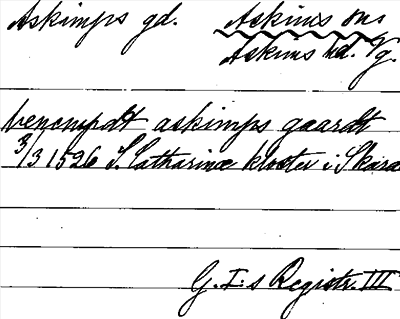 Askimps gd. Askims sns
Askims hd. Vg.
benempdt askimps gaardt
3/3 1526 S. Catharinæ kloster i Skara
G. I:s Registr. III